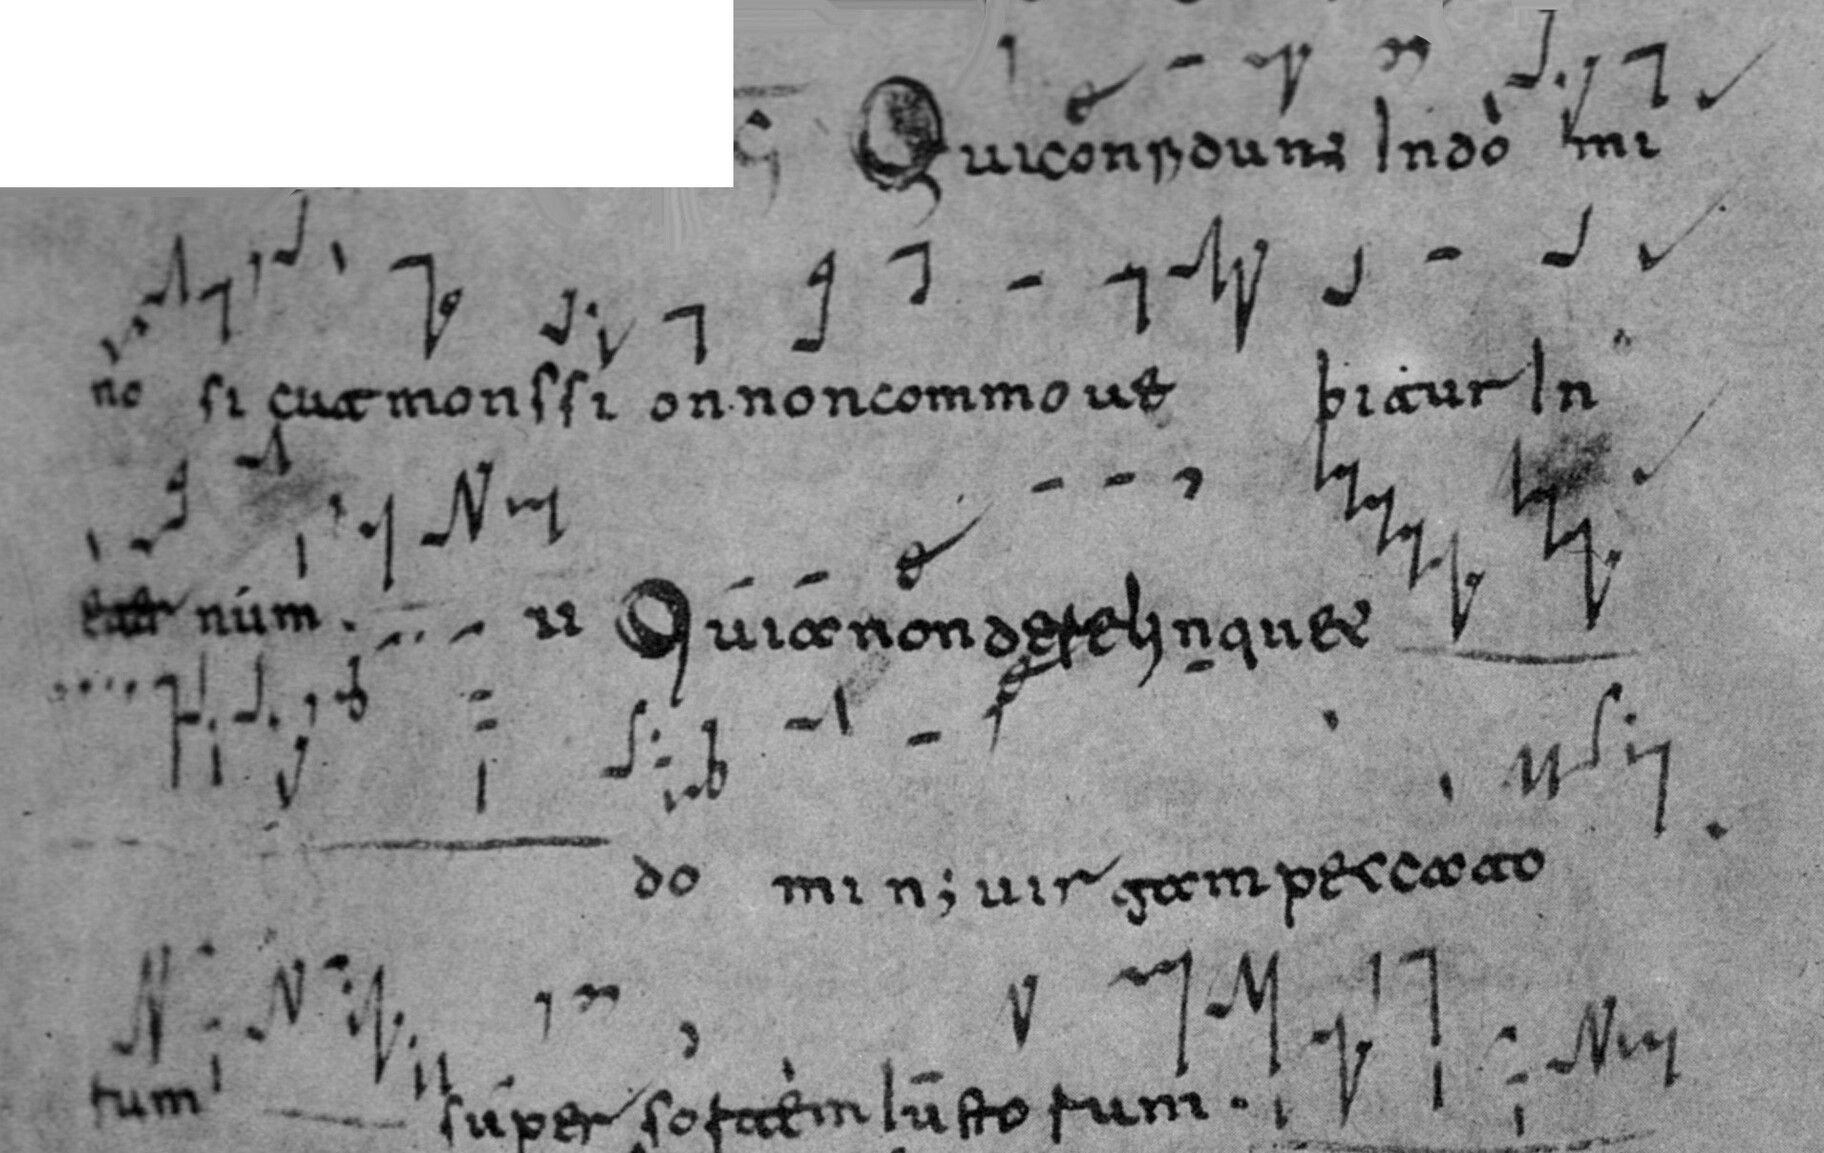 Qui confidunt In do mi
no sicut mons sion non commoue bitur In
eternum. V Quia non derelinquet
do minus uirgam peccato
rum super sortem Iustorum.